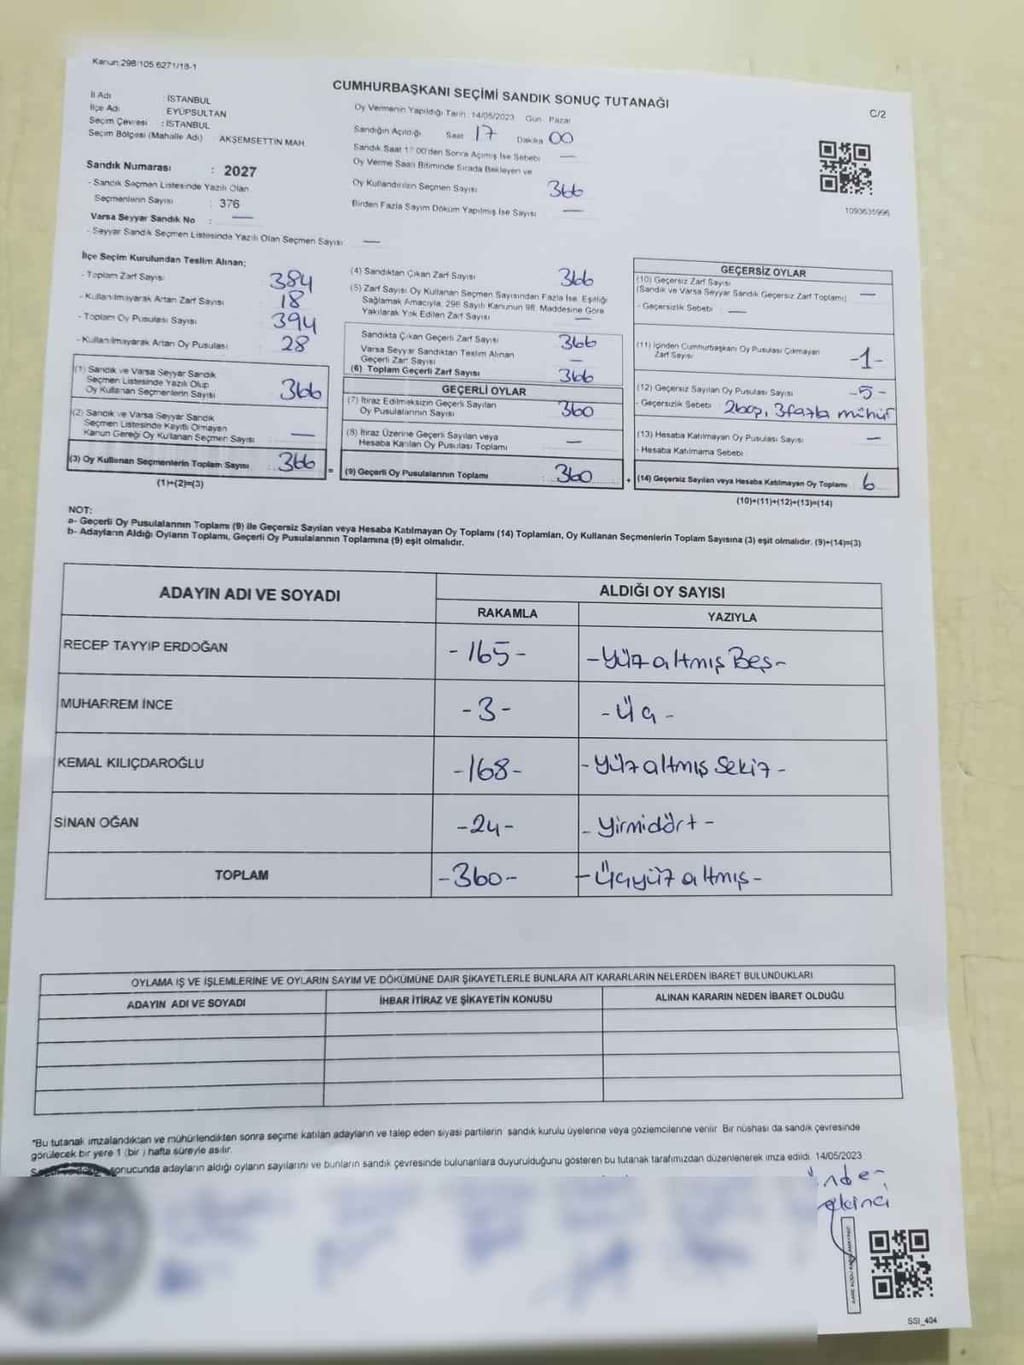 Kanun:298/105 6271/18-1
CUMHURBAŞKANI SEÇİMİ SANDIK SONUÇ TUTANAĞI
C/2
İl Adı : İSTANBUL
İlçe Adı : EYÜPSULTAN
Seçim Çevresi : İSTANBUL
Seçim Bölgesi (Mahalle Adı) AKŞEMSETTİN MAH
Sandık Numarası : 2027
- Sandık Seçmen Listesinde Yazılı Olan
Seçmenlerin Sayısı : 376
Varsa Seyyar Sandık No : —
- Seyyar Sandık Seçmen Listesinde Yazılı Olan Seçmen Sayısı —
Oy Vermenin Yapıldığı Tarih 14/05/2023 Gün Pazar
Sandığın Açıldığı Saat 17 Dakika 00
Sandık Saat 17:00'den Sonra Açılmış İse Sebebi —
Oy Verme Saati Bitiminde Sırada Bekleyen ve
Oy Kullandırılan Seçmen Sayısı 366
Birden Fazla Sayım Döküm Yapılmış İse Sayısı —
1093635996
İlçe Seçim Kurulundan Teslim Alınan;
- Toplam Zarf Sayısı 384
- Kullanılmayarak Artan Zarf Sayısı 18
- Toplam Oy Pusulası Sayısı 394
- Kullanılmayarak Artan Oy Pusulası 28
(1) Sandık ve Varsa Seyyar Sandık
Seçmen Listesinde Yazılı Olup
Oy Kullanan Seçmenlerin Sayısı 366
(2) Sandık ve Varsa Seyyar Sandık
Seçmen Listesinde Kayıtlı Olmayan
Kanun Gereği Oy Kullanan Seçmen Sayısı —
(3) Oy Kullanan Seçmenlerin Toplam Sayısı 366
(1)+(2)=(3)
(4) Sandıktan Çıkan Zarf Sayısı 366
(5) Zarf Sayısı Oy Kullanan Seçmen Sayısından Fazla İse, Eşitliği
Sağlamak Amacıyla, 298 Sayılı Kanunun 98. Maddesine Göre
Yakılarak Yok Edilen Zarf Sayısı —
Sandıkta Çıkan Geçerli Zarf Sayısı 366
Varsa Seyyar Sandıktan Teslim Alınan
Geçerli Zarf Sayısı —
(6) Toplam Geçerli Zarf Sayısı 366
GEÇERLİ OYLAR
(7) İtiraz Edilmeksizin Geçerli Sayılan
Oy Pusulalarının Sayısı 360
(8) İtiraz Üzerine Geçerli Sayılan veya
Hesaba Katılan Oy Pusulası Toplamı —
= (9) Geçerli Oy Pusulalarının Toplamı 360
GEÇERSİZ OYLAR
(10) Geçersiz Zarf Sayısı
(Sandık ve Varsa Seyyar Sandık Geçersiz Zarf Toplamı) —
- Geçersizlik Sebebi —
(11) İçinden Cumhurbaşkanı Oy Pusulası Çıkmayan
Zarf Sayısı -1-
(12) Geçersiz Sayılan Oy Pusulası Sayısı -5-
- Geçersizlik Sebebi 2boş, 3fazla mühür
(13) Hesaba Katılmayan Oy Pusulası Sayısı —
- Hesaba Katılmama Sebebi
+ (14) Geçersiz Sayılan veya Hesaba Katılmayan Oy Toplamı 6
(10)+(11)+(12)+(13)=(14)
NOT:
a- Geçerli Oy Pusulalarının Toplamı (9) ile Geçersiz Sayılan veya Hesaba Katılmayan Oy Toplamı (14) Toplamları, Oy Kullanan Seçmenlerin Toplam Sayısına (3) eşit olmalıdır. (9)+(14)=(3)
b- Adayların Aldığı Oyların Toplamı, Geçerli Oy Pusulalarının Toplamına (9) eşit olmalıdır.
ADAYIN ADI VE SOYADI
ALDIĞI OY SAYISI
RAKAMLA YAZIYLA
RECEP TAYYİP ERDOĞAN -165- -Yüz altmış Beş-
MUHARREM İNCE -3- -Üç-
KEMAL KILIÇDAROĞLU -168- -Yüz altmış Sekiz-
SİNAN OĞAN -24- -Yirmidört-
TOPLAM -360- -Üçyüz altmış-
OYLAMA İŞ VE İŞLEMLERİNE VE OYLARIN SAYIM VE DÖKÜMÜNE DAİR ŞİKAYETLERLE BUNLARA AİT KARARLARIN NELERDEN İBARET BULUNDUKLARI
ADAYIN ADI VE SOYADI İHBAR İTİRAZ VE ŞİKAYETİN KONUSU ALINAN KARARIN NEDEN İBARET OLDUĞU
*Bu tutanak imzalandıktan ve mühürlendikten sonra seçime katılan adayların ve talep eden siyasi partilerin sandık kurulu üyelerine veya gözlemcilerine verilir. Bir nüshası da sandık çevresinde
görülecek bir yere 1 (bir) hafta süreyle asılır.
sonucunda adayların aldığı oyların sayılarını ve bunların sandık çevresinde bulunanlara duyurulduğunu gösteren bu tutanak tarafımızdan düzenlenerek imza edildi. 14/05/2023
SSI_404